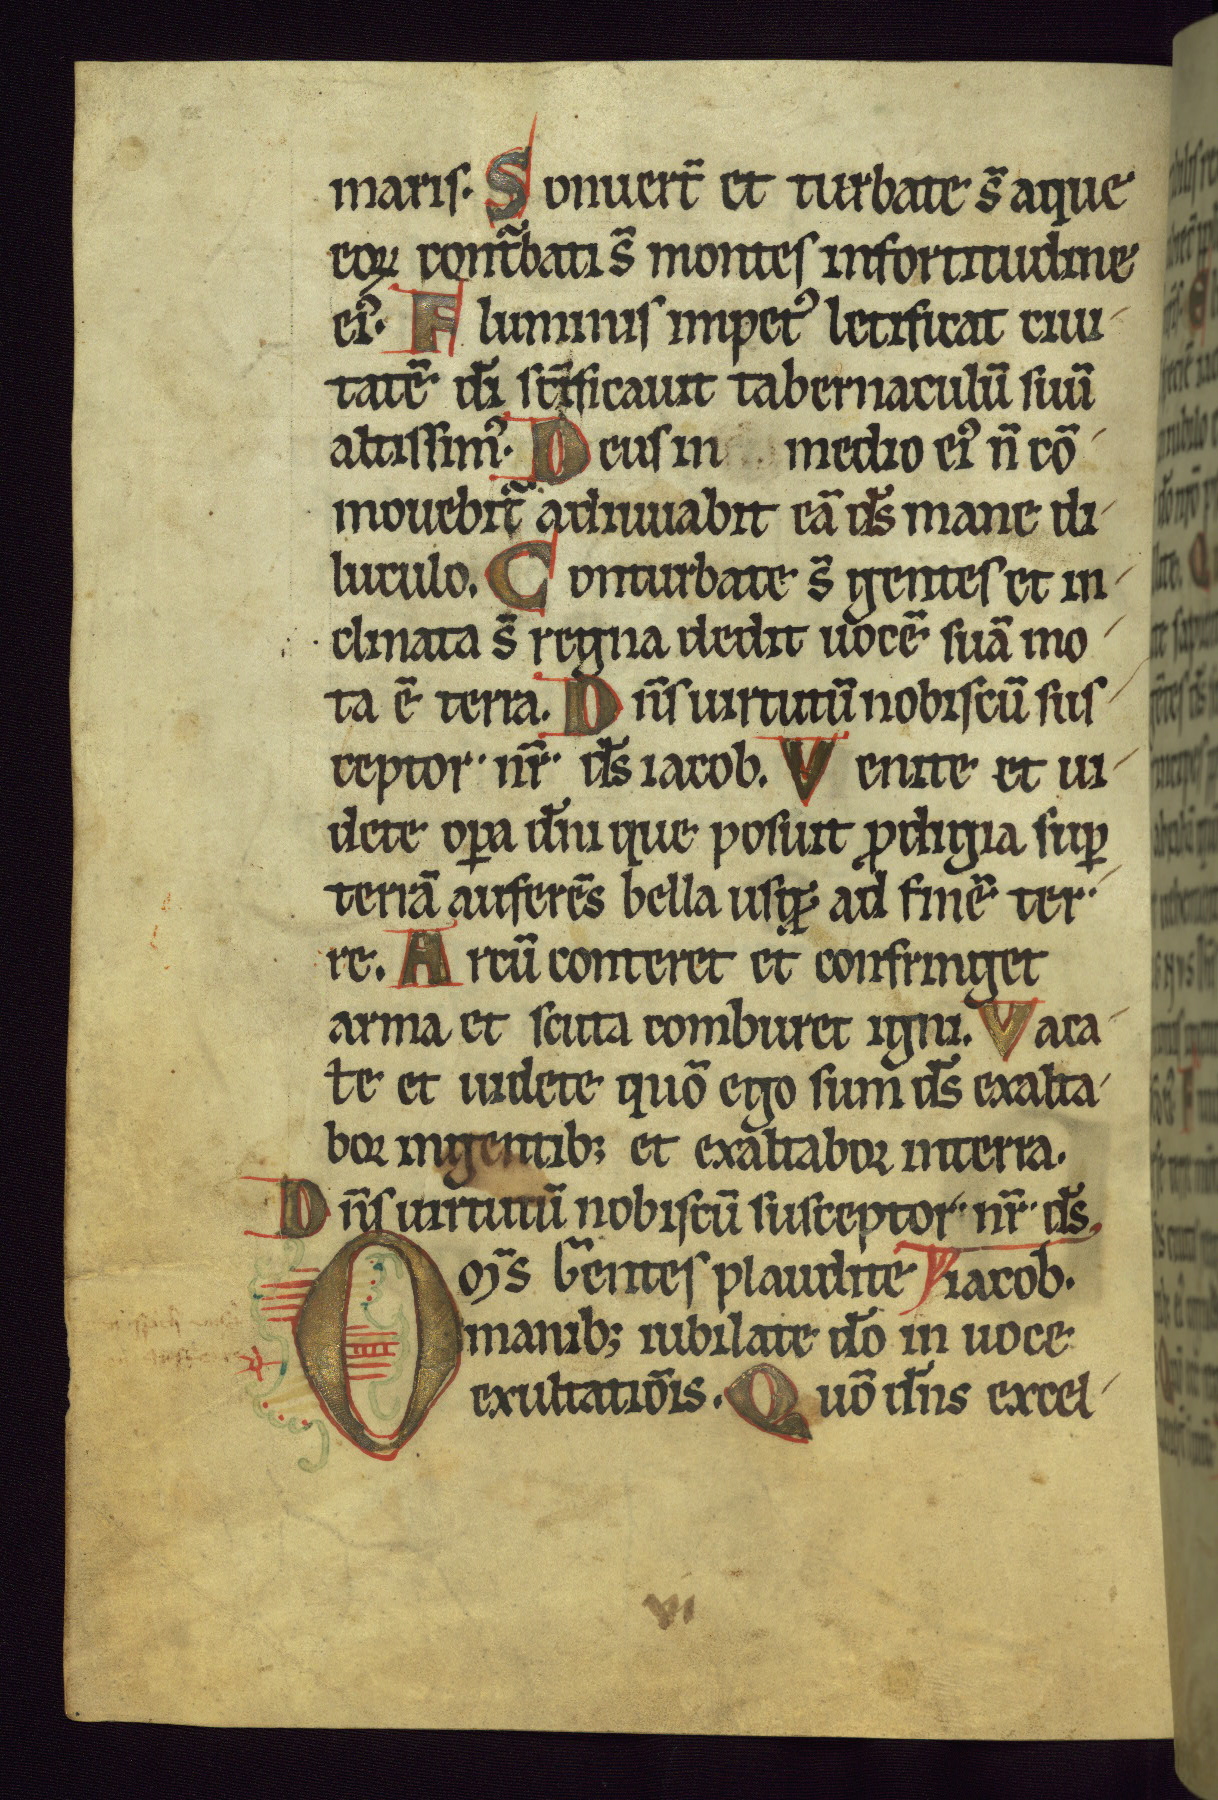 maris. Sonuert̄ et turbate s̄ aque
eoꝝ contͣbati s̄ montes infortitudine
ei᾿. Fluminis impet᾿ letificat ciui
tatē dī sc̄ificauit tabernaculū suū
altissim᾿. Deus in medio ei᾿ n̄ cō
mouebit᷑ adiuuabit eā ds̄ mane di
luculo. Conturbate s̄ gentes et in
clinata s̄ regna dedit uocē suā mo
ta ē terra. Dn̄s uirtutū nobiscū sus
ceptor nr̄ ds̄ iacob. Venite et ui
dete oꝑa dn̄i que posuit ꝓdigia suꝑ
terrā auferēs bella usqꝫ ad finē ter
re. Arcū conteret et confringet
arma et scuta comburet igni. Vaca
te et uidete quō ego sum ds̄ exalta
bor ingentibꝫ et exaltabor interra.
Dn̄s uirtutū nobiscū susceptor nr̄ ds̄
Om̄s gentes plaudite iacob.
manibꝫ iubilate dō in uoce
exultatiōis. Quō dn̄s excel
vi